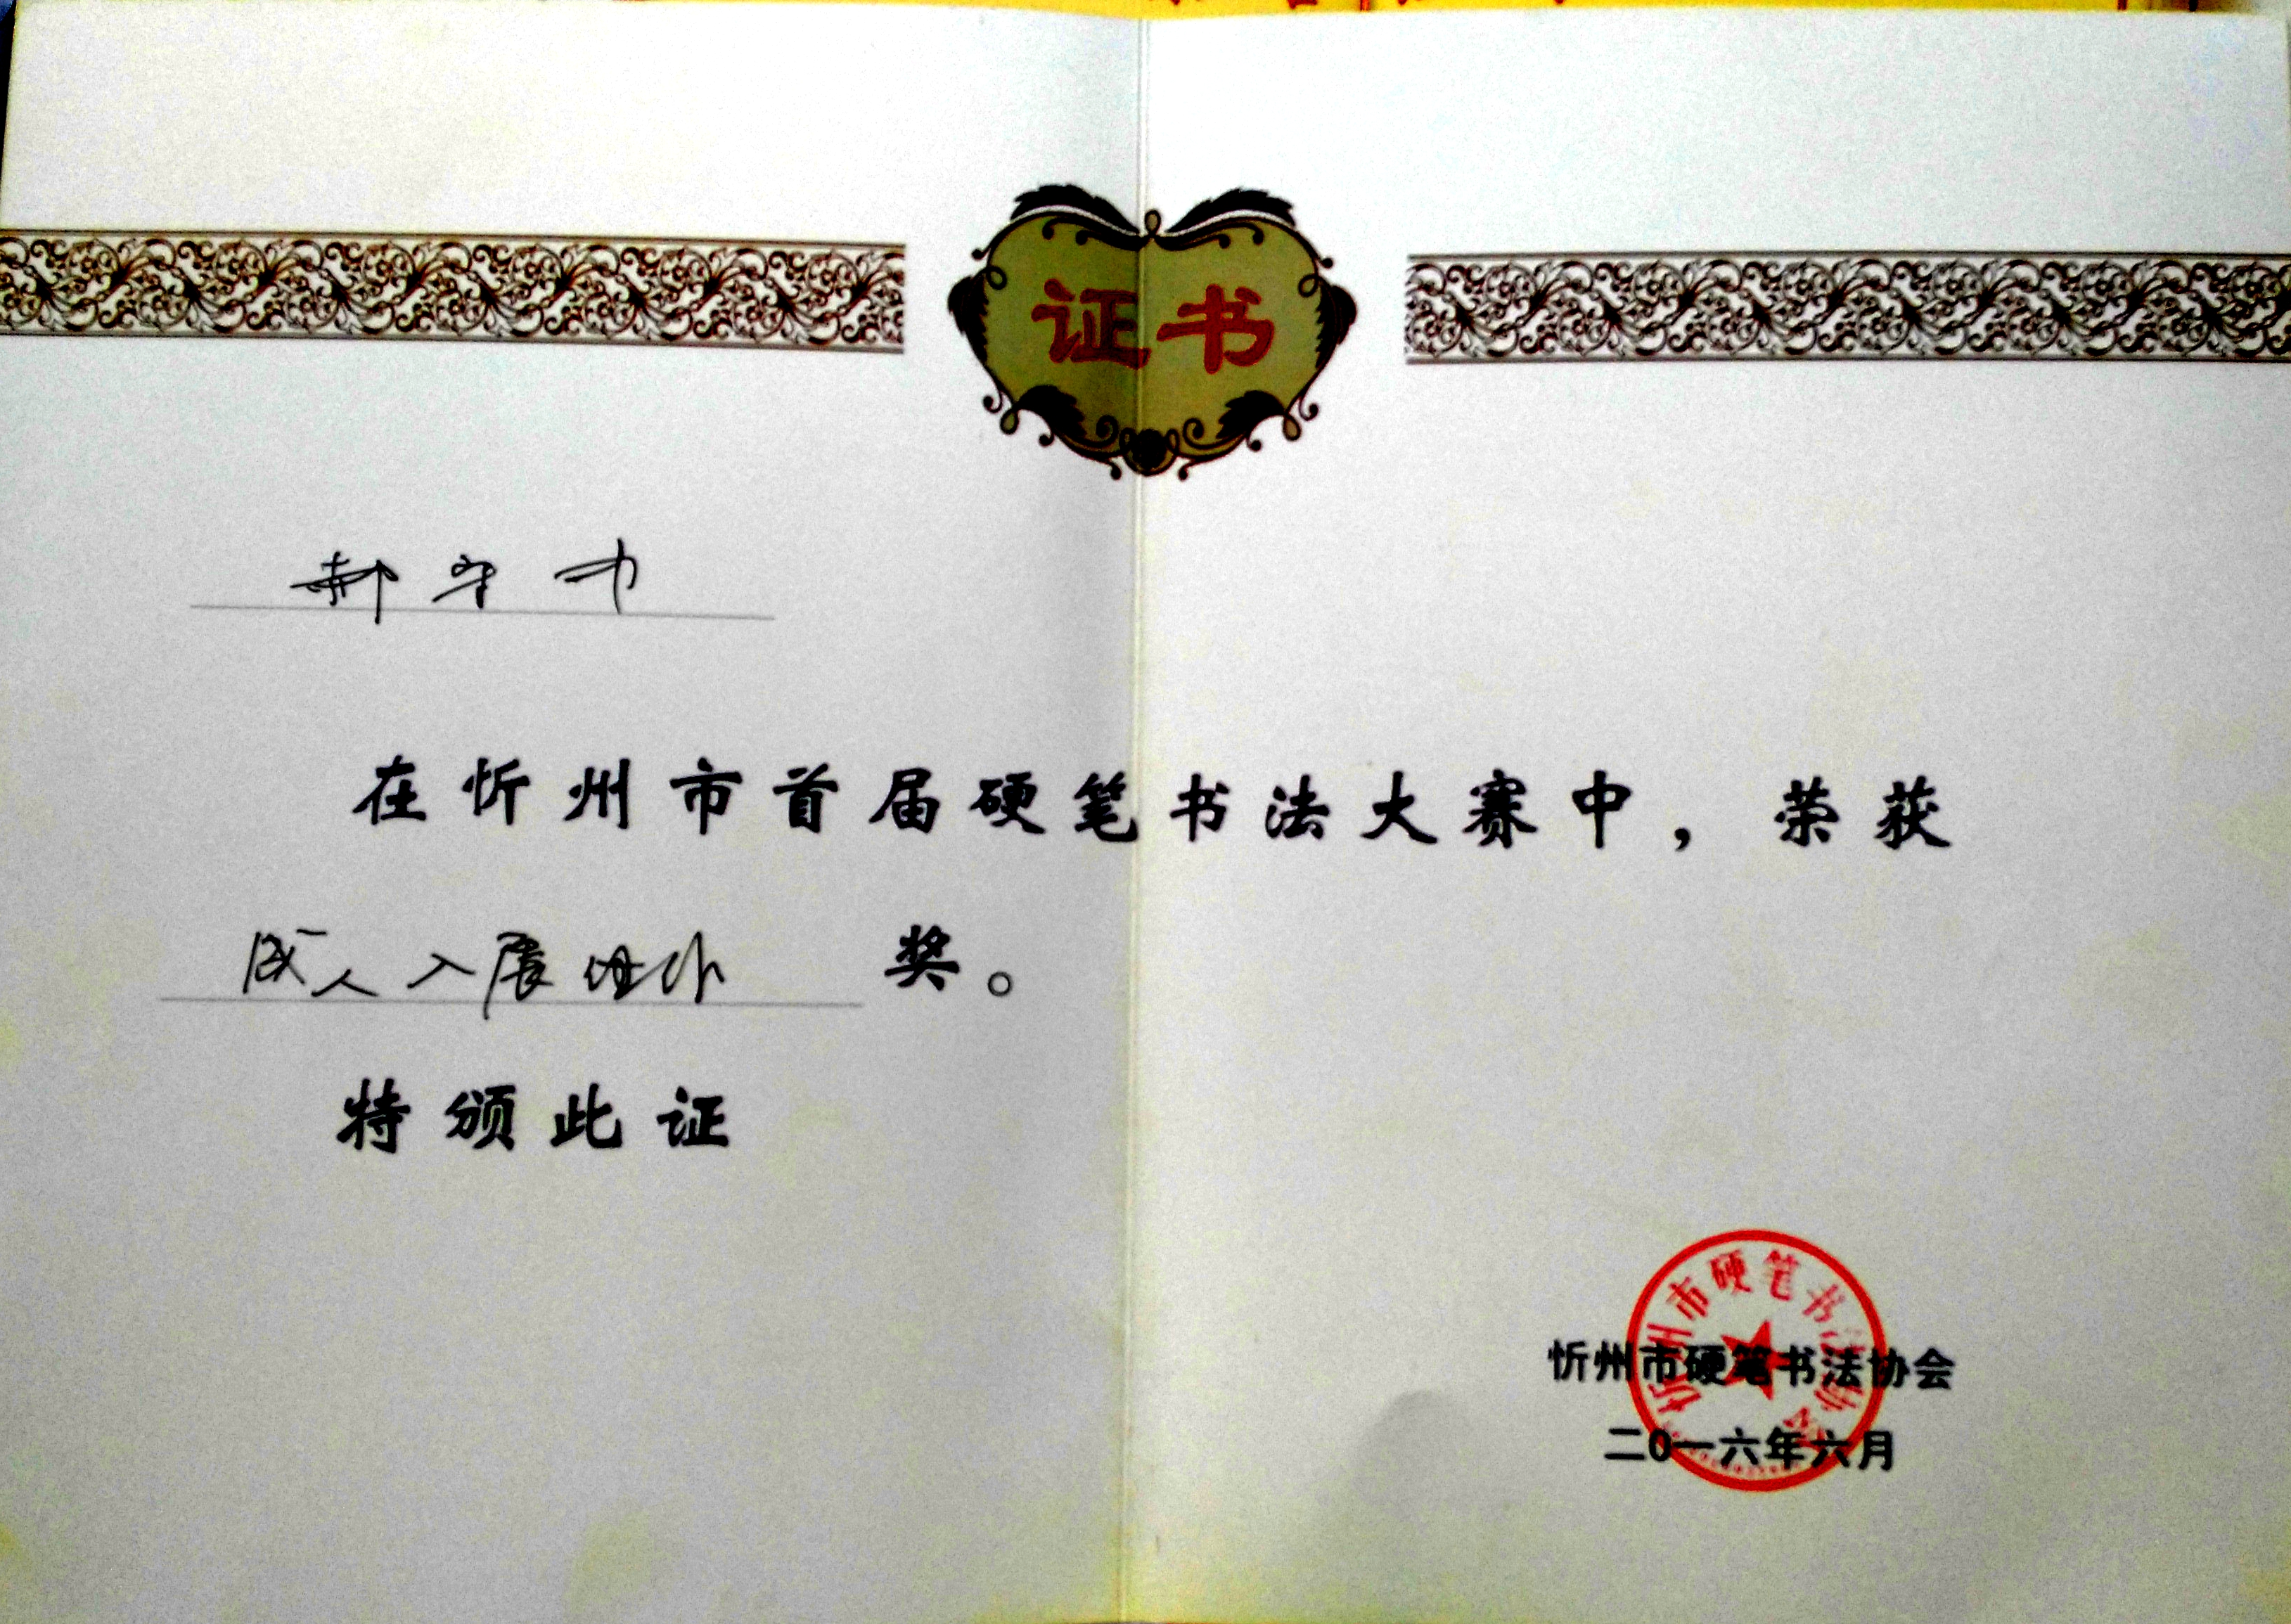 证书
郝守力
在忻州市首届硬笔书法大赛中，荣获
成人入展 奖。
特颁此证
忻州市硬笔书法协会
忻州市硬笔书法协会
二0一六年六月